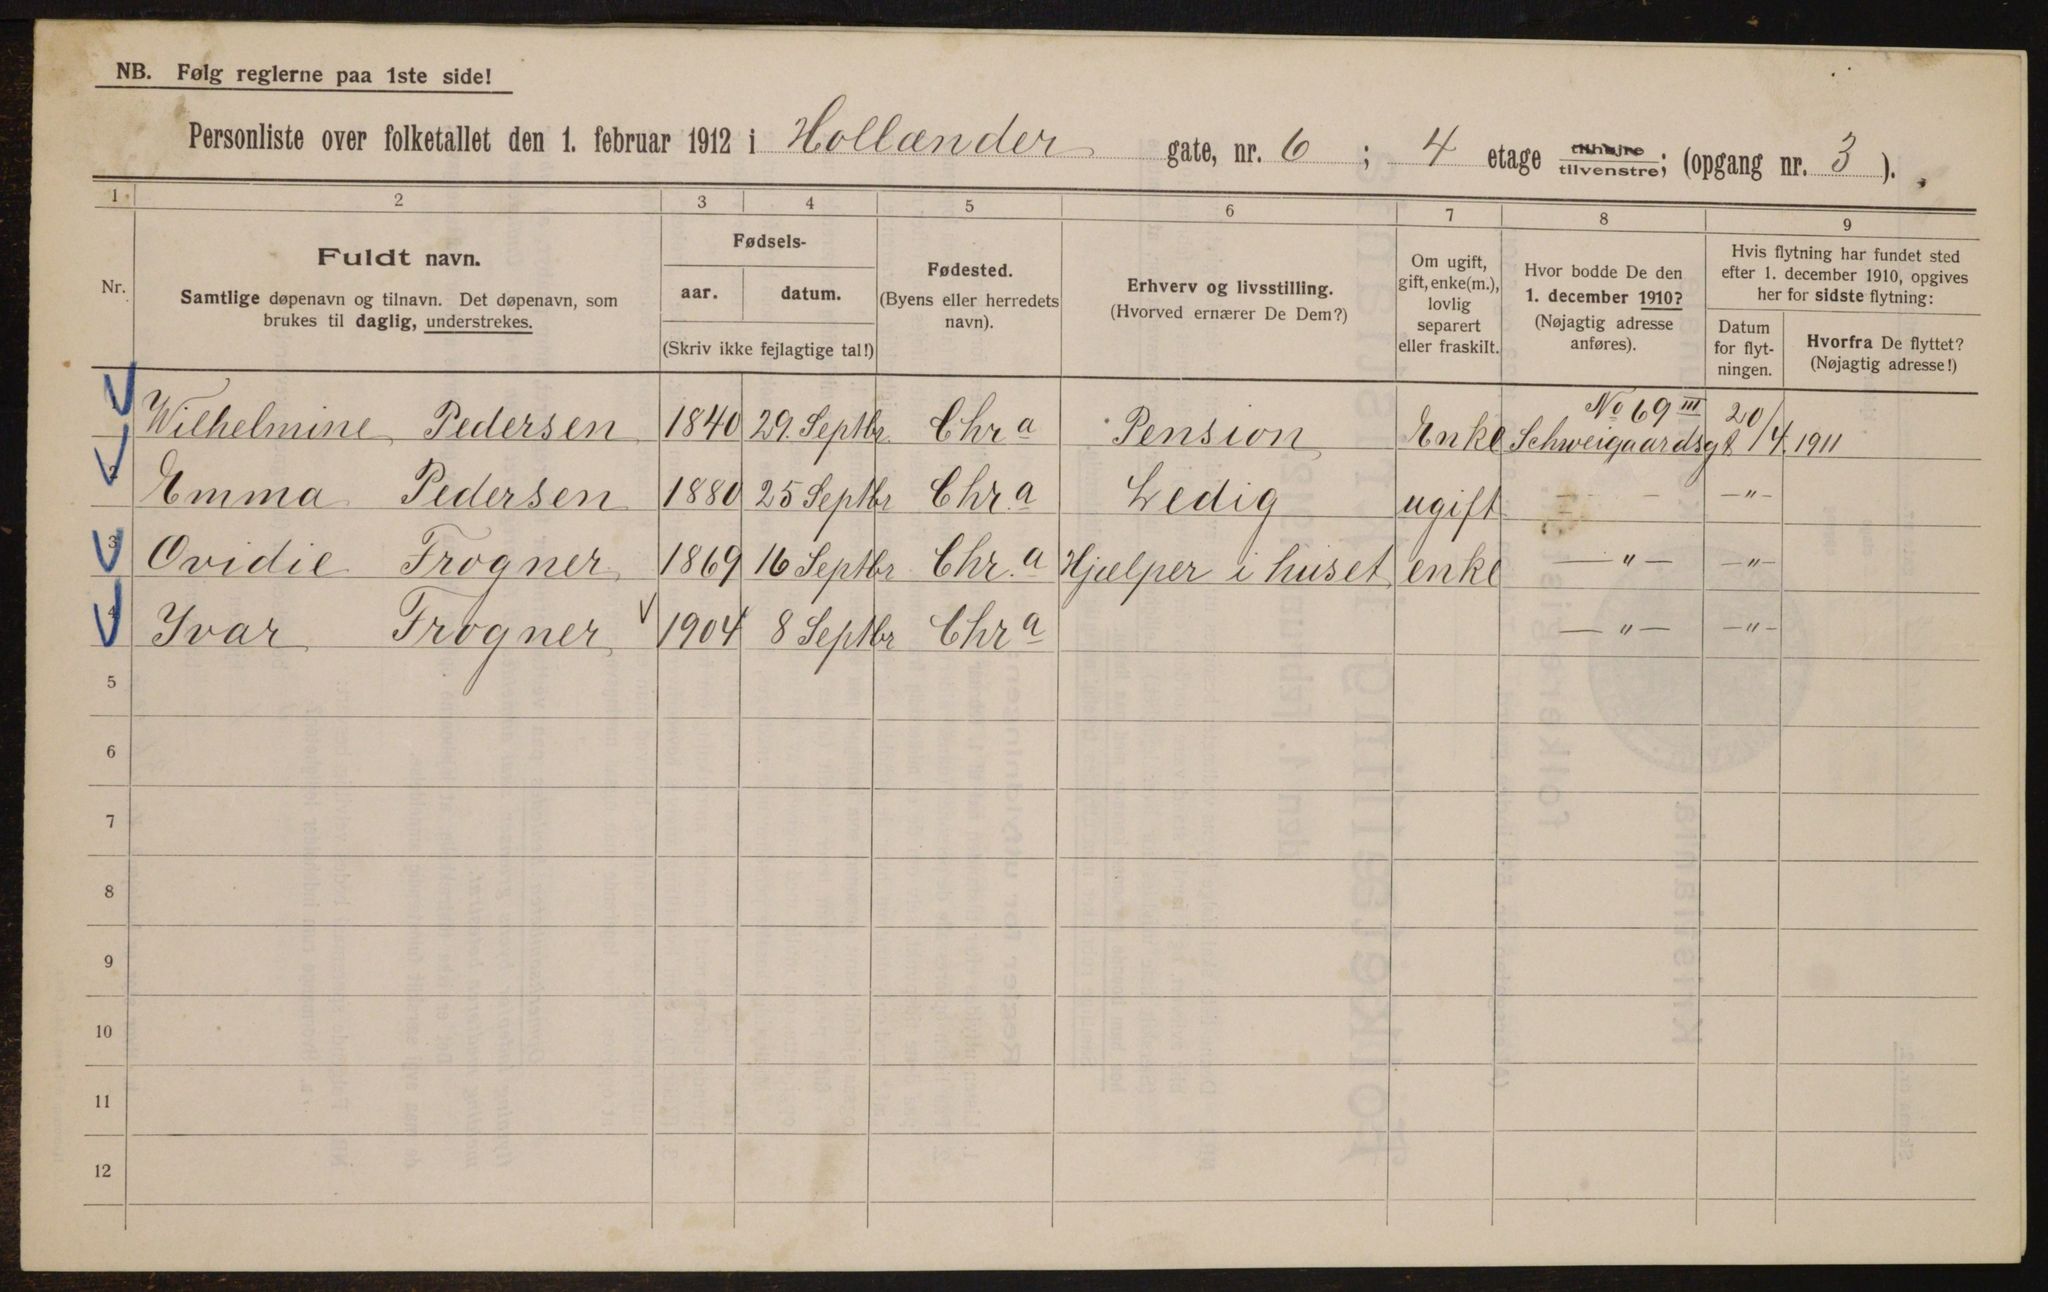 NB. Følg reglerne paa 1ste side!
Personliste over folketallet den 1. februar 1912 i Hollænder gate, nr. 6 ; 4 etage tilhøjre tilvenstre; (opgang nr. 3 ).
1 2 3 4 5 6 7 8 9
Nr.
Fuldt navn.
Samtlige døpenavn og tilnavn. Det døpenavn, som
brukes til daglig, understrekes.
Fødsels-
aar. datum.
(Skriv ikke fejlagtige tal!)
Fødested.
(Byens eller herredets
navn).
Erhverv og livsstilling.
(Hvorved ernærer De Dem?)
Om ugift,
gift, enke(m.),
lovlig
separert
eller fraskilt.
Hvor bodde De den
1. december 1910?
(Nøjagtig adresse
anføres).
Hvis flytning har fundet sted
efter 1. december 1910, opgives
her for sidste flytning:
Datum
for flyt-
ningen.
Hvorfra De flyttet?
(Nøjagtig adresse!)
Wilhelmine Pedersen 1840 29. Septbr Chr a Pension Enke No 69 III Schweigaardsgt 20/4 1911
2 Emma Pedersen 1880 25 Septbr Chr. a Ledig ugift — — —"—
3 Ovidie Frogner 1869 16 Septbr Chr. a Hjælper i huset enke —"— —"—
4 Ivar Frogner 1904 8 Septbr Chr a —"— —"—
5
6
7
8
9
10
11
12